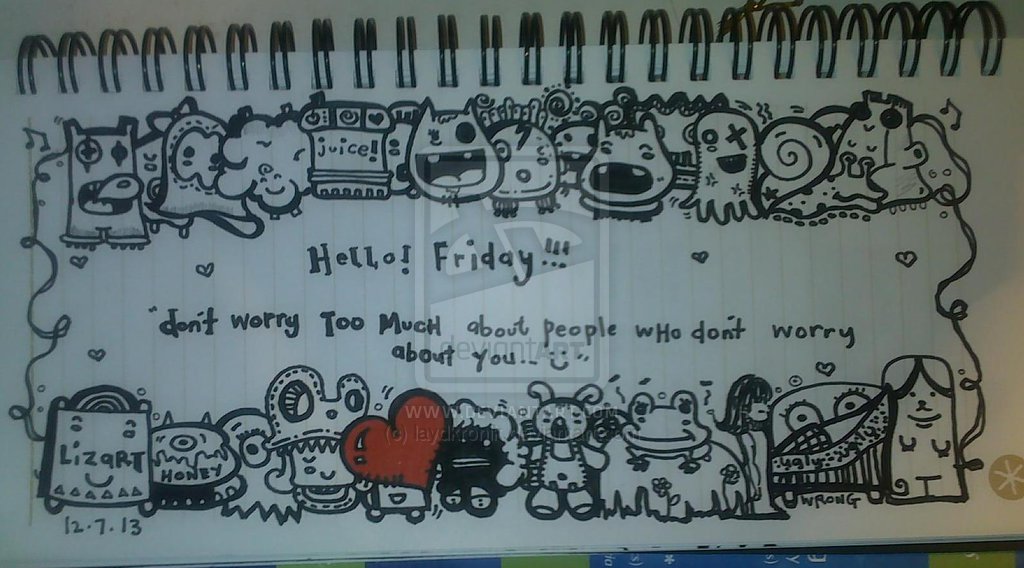 juice!
Hello! Friday!!!
"don't worry Too Much about people who don't worry
about you... "
deviantART
WWW.DEVIANTART.COM
LizART
HONEY
ugly
WRONG
12.7.13